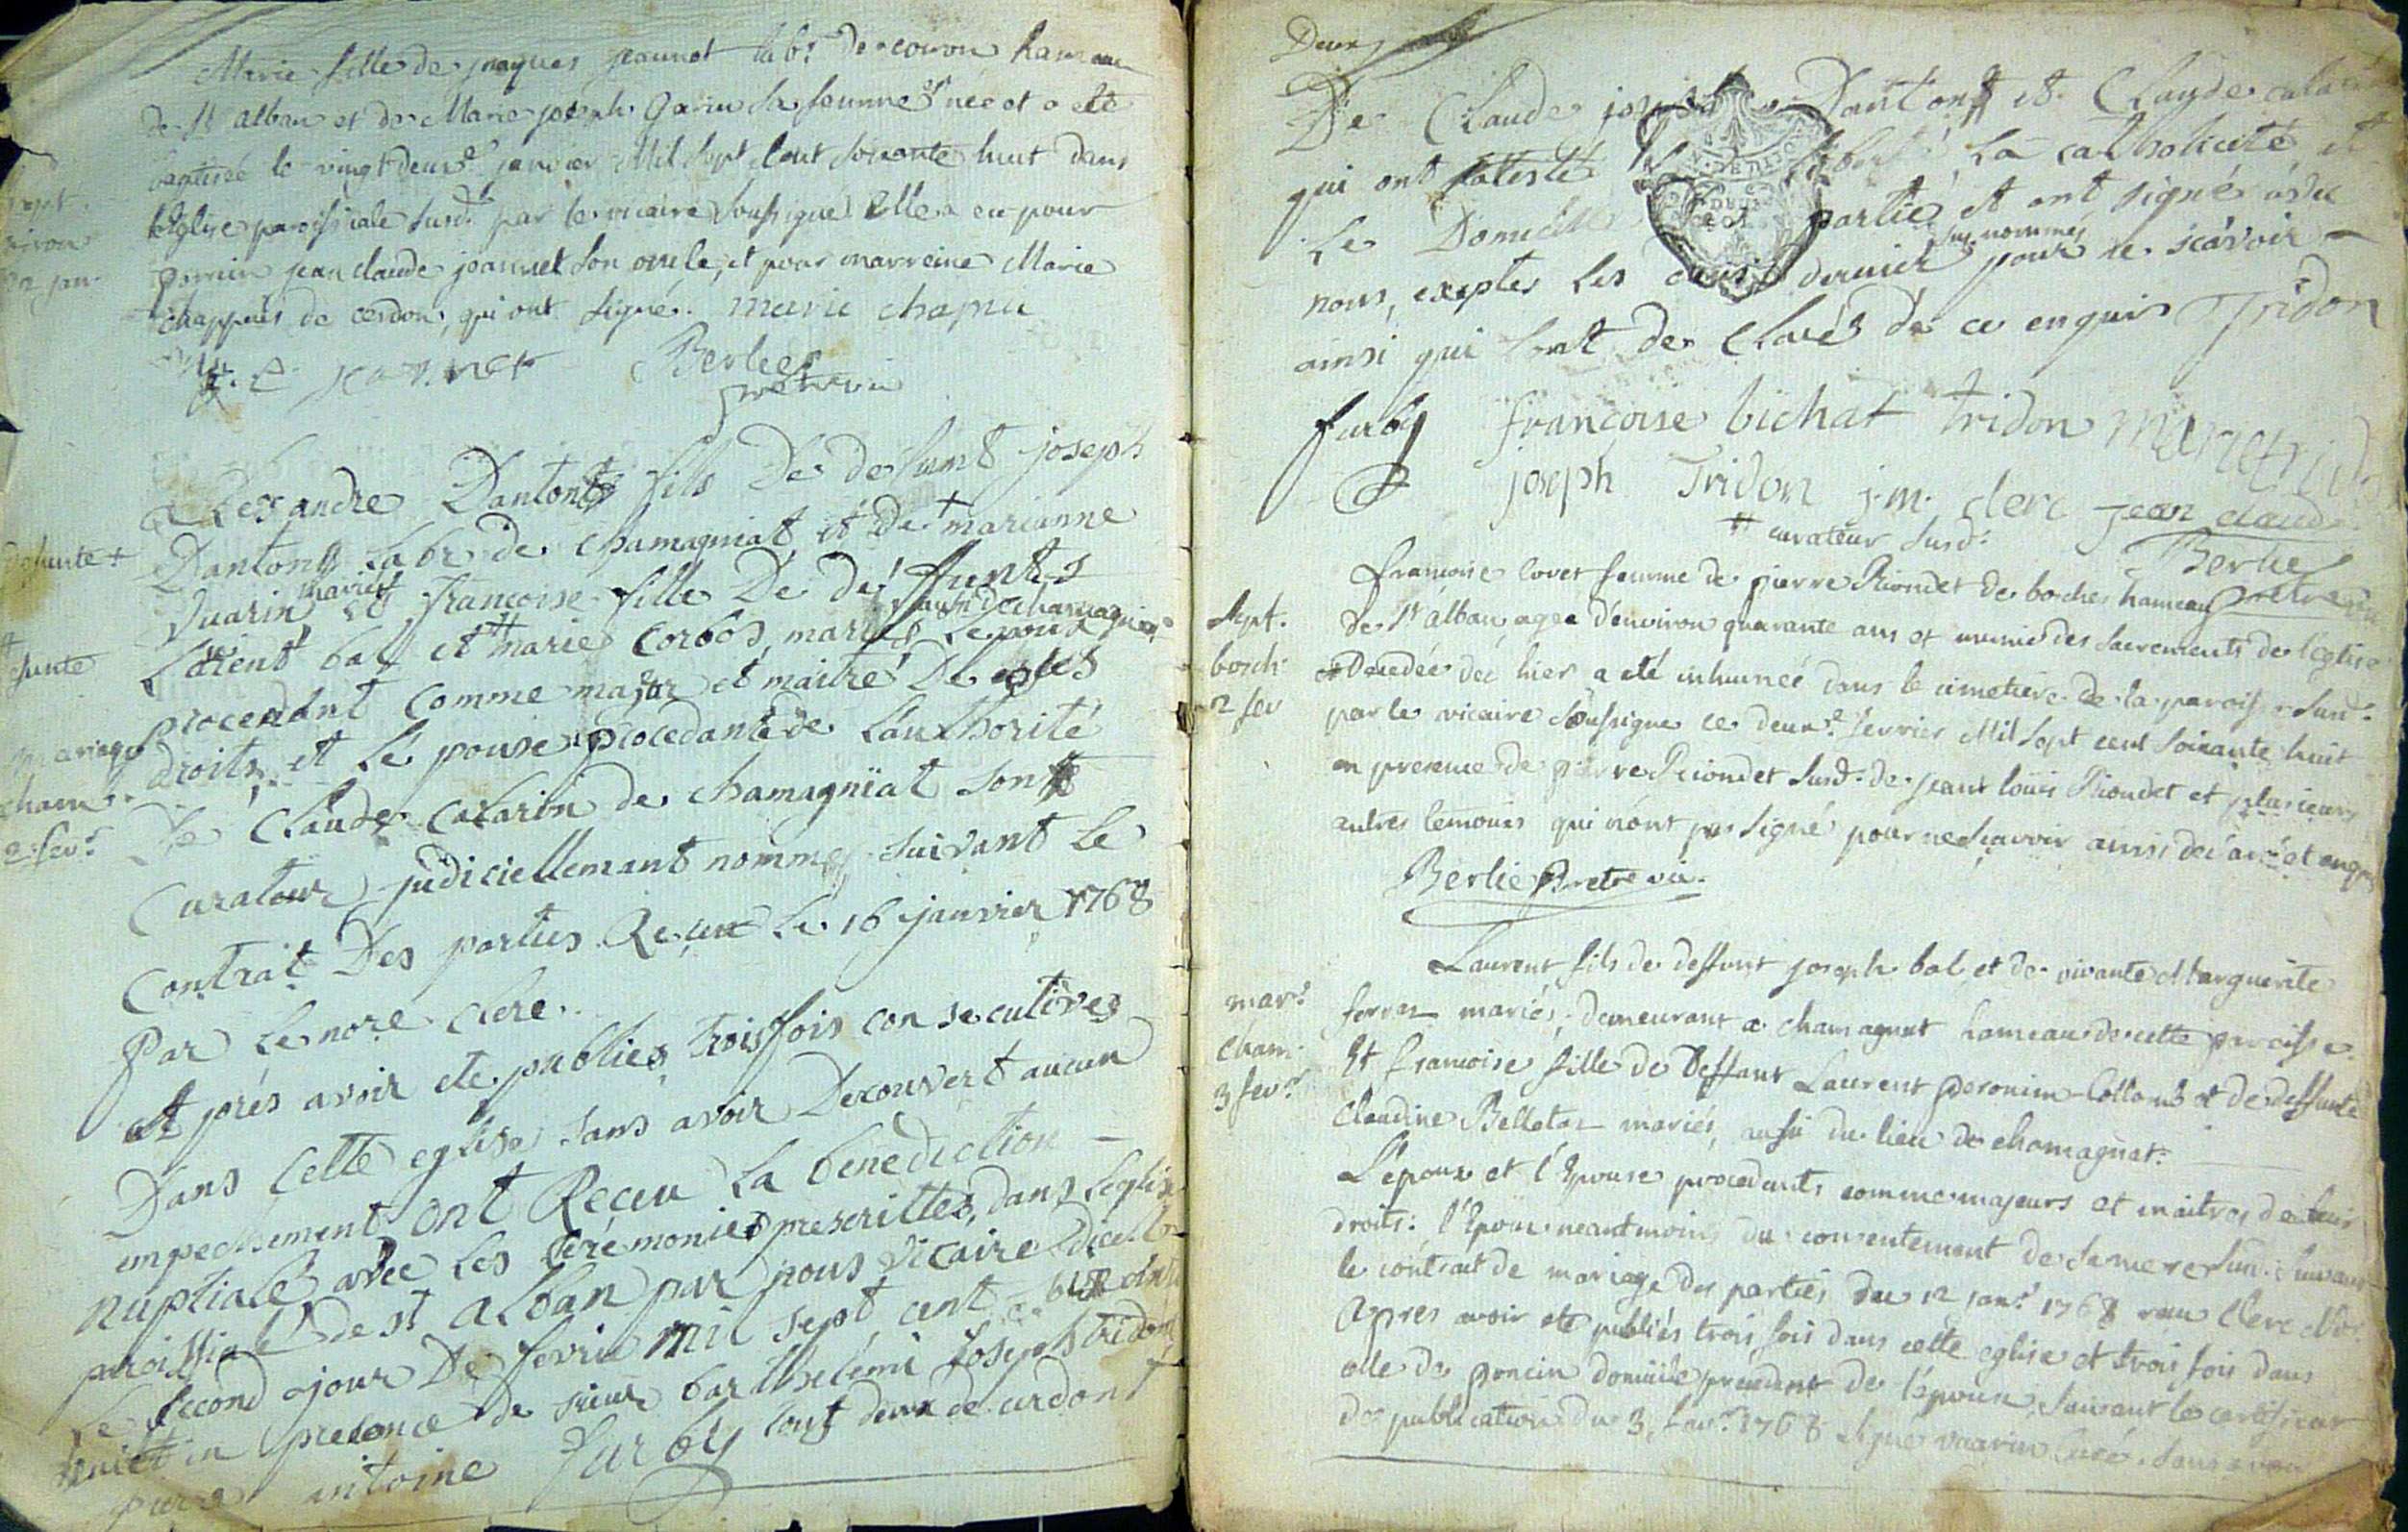 Marie fille de jraques jeannet lab.r de coiron hameau
de St alban et de Marie joseph Garin sa femme est née et a été
baptisée le vingt deux.e janvier Mil sept Cent soixante huit dans
l'Eglise paroissiale susd.te par le vicaire soussigné Elle a eu pour
parrin jean claude jeannet son oncle, et pour marreine Marie
chappuis de cerdon, qui ont signé. marie chapui
j. C jeannet Berlie
pretre vic
bapt.
coiron
22 jan.
alexandre Dantont fils De defunt joseph
Dantont Labr de chamagniat et de + marianne
defunte +
Vuarin mariés et francoise fille De deffunts
Laurent bal et # marie Corbos, mariés aussi de chamagniat Lepoux
# defunte
procendant Comme major et maitre De ses
droits, et Lé pouse procedante de L'authorité
mariage
cham.
2 fev.r
De Claude Catarin de chamagniat son
Curateur judiciellemant nommé suivant Le
Contrait Des parties Reçeu Le 16 janvier 1768
Par Le nore clere.
et prés avoir ete publies trois fois consecutives
Dans Cette eglise sans avoir Decouvert aucun
impechement ont Receu La benediction
nuptiale avec Les cerémonies prescrittes, dans L'eglise
paroissiale de st alban par nous vicaire dicelle
Le second jour De fevrie mil sept cent soixante
huict in presence de sieur barthelemi Joseph tridon
pierre antoine furby tous deux de cerdont
Deux
De Claude joseph Dantont et Claude catarin
qui ont attesté La Liberté, La catholicité et
Le Domicille Des partie et ont signé avec
nous, exeptes Les deux dernier sus nommés pour ne sçavoir
ainsi qui l'ont de Claré de ce enquis Tridon
furby françoise bichat tridon
joseph Tridon j.m. clerc jean claude
# curateur susd.t
Berlie
pretre vic
francoise lovet femme de pierre Riondet de boches hameau
Sept.
boch
2 fev
de St alban agée d'environ quarante ans et munie des sacrements de l'eglise
Decedée dés hier a eté inhumée dans le cimetiere de la paroisse susd.te
par le vicaire soussigné ce deux.e fevrier Mil sept cent soixante huit
en presence de pierre Riondet susd.t de jean louis Riondet et plusieurs
autres temoins qui n'ont pas signé pour ne sçavoir ainsi declaré et enquis
Berlie Pretre vic.
Laurent fils de deffunt joseph bal et de vivante Marguerite
mar.e
cham.
3 fev.r
ferraz mariés, demeurant a chamagnat hameau de cette paroisse.
Et francoise fille de deffunt Laurent peronin-Collomb et de deffunte
Claudine Belleton mariés, aussi du lieu de chamagnat.
L'epoux et l'Epouse procedants comme majeurs et maitres de leurs
droits: l'Epoux neantmoins du consentement de sa mere susd. suivant
le contrait de mariage des parties du 12 jan.r 1768 reçu Clerc Not.
Apres avoir eté publiés trois fois dans cette eglise et trois fois dans
celle de poncin domicile precedent de l'epoux, suivant le certificat
de publication du 3 fev.r 1768 signé vuarin Curé. sans avoir